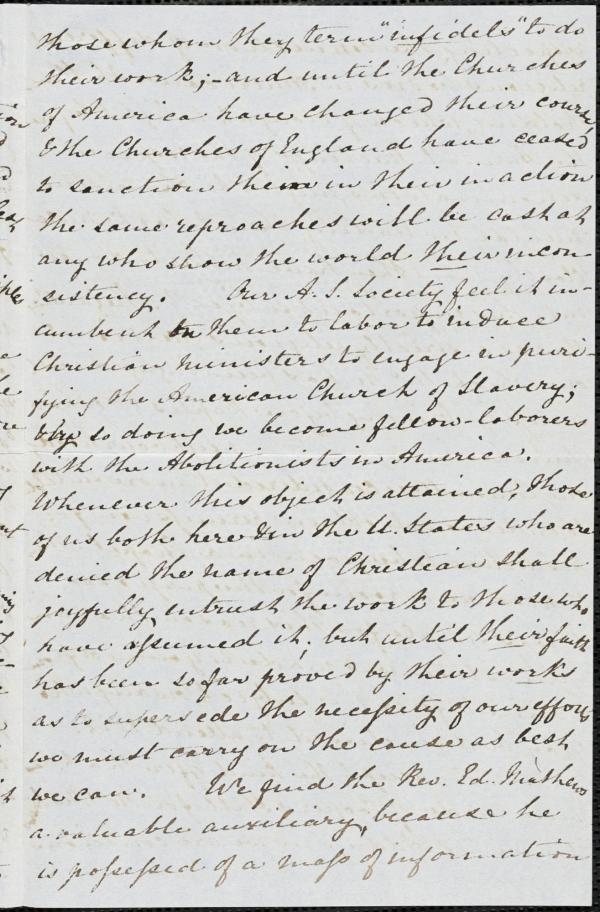 those whom they term "infidels" to do
their work; - and until the Churches
of America have changed their course,
& the Churches of England have ceased
to sanction them in their inaction
the same reproaches will be cast at
any who show the world their incon-
sistency. Our A. S. Society feel it in-
cumbent on them to labor to induce
Christian ministers to engage in puri-
fying the American Church of Slavery;
& by so doing we become fellow-laborers
with the Abolitionists in America.
Whenever this object is attained, those
of us both here & in the U. States who are
denied the name of Christian shall
joyfully intrust the work to those who
have assumed it; but until their faith
has been so far prove'd by their works
as to supersede the necessity of our efforts
we must carry on the cause as best
we can. We find the Rev. Ed. Mathews
a valuable auxiliary, because he
is possessed of a mass of information